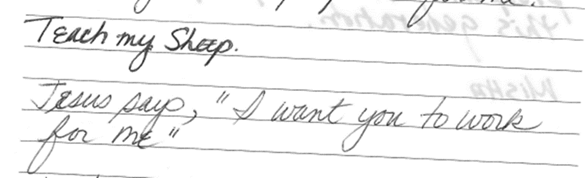 Teach my Sheep.
Jesus says, "I want you to work
for me"